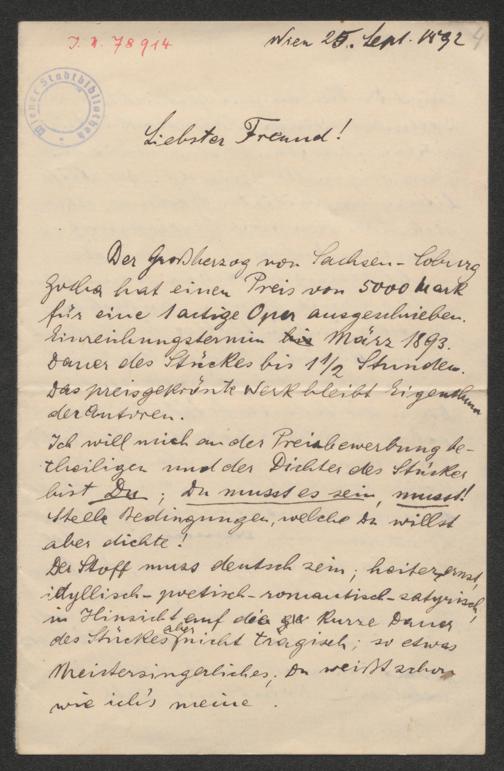 J. N. 78914
Wien 25. Sept. 1892
4
Wiener Stadtbibliothek
Liebster Freund!
Der Großherzog von Sachsen-Coburg
Gotha hat einen Preis von 5000 Mark
für eine 1actige Oper ausgeschrieben.
Einreichungstermin bis März 1893.
Dauer des Stückes bis 1 1/2 Stunden.
Das preisgekrönte Werk bleibt Eigenthum
der Autoren.
Ich will mich an der Preisbewerbung be-
theiligen und der Dichter des Stückes
bist Du; Du musst es sein, musst!
Stelle Bedingungen, welche Du willst
aber dichte!
Der Stoff muss deutsch sein; heiter, ernst,
idyllisch-poetisch-romantisch-satyrisch,
in Hinsicht auf die kurze Dauer
des Stückes aber nicht tragisch; so etwas
Meistersingerliches; Du weißt schon
wie ich's meine.